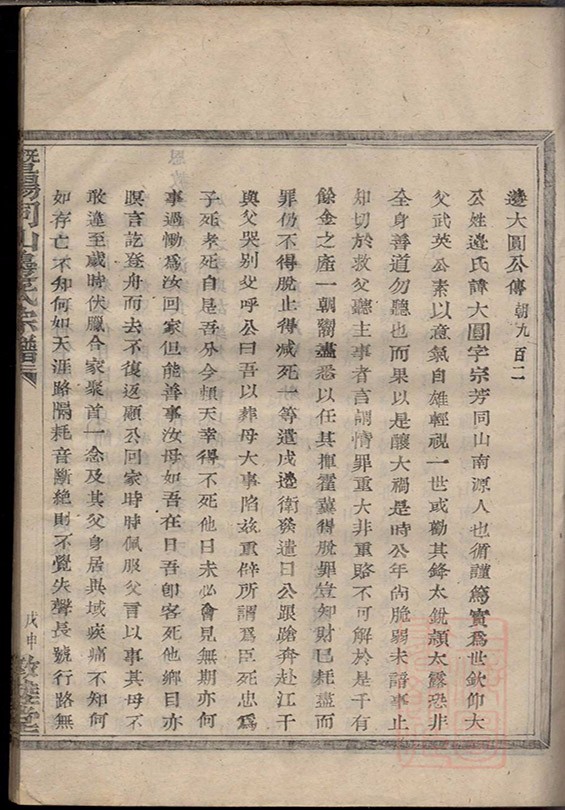 邊大圓公傳 朝九百二
公姓邊氏諱大圓字宗芳同山南源人也循謹篤實爲世欽仰大
父武英公素以意氣自雄輕視一世或勸其鋒太銳頴太露恐非
全身善道勿聽也而果以是釀大禍是時公年尙脆弱未諳事止
知切於救父聽主事者言謂情罪重大非重賂不可解於是千有
餘金之產一朝鬻盡悉以任其揮霍冀得脫罪豈知財已耗盡而
罪仍不得脫止得减死一等遣戍邊衛發遣日公踉蹌奔赴江干
與父哭別父呼公曰吾以葬母大事陷茲重倂所謂爲臣死忠爲
子死孝死自是吾分今頼天幸得不死他日未必會見無期亦何
事過慟爲汝回家但能善事汝母如吾在日吾卽客死他鄉目亦
瞑言訖登舟而去不復返顧公回家時時佩服父言以事其母不
敢違至歲時伏臘合家聚首一念及其父身居異域疾痛不知何
如存亡不知何如天涯路隔耗音斷絕則不覺失聲長號行路無
暨陽同山邊氏宗譜
戊申 敦睦堂